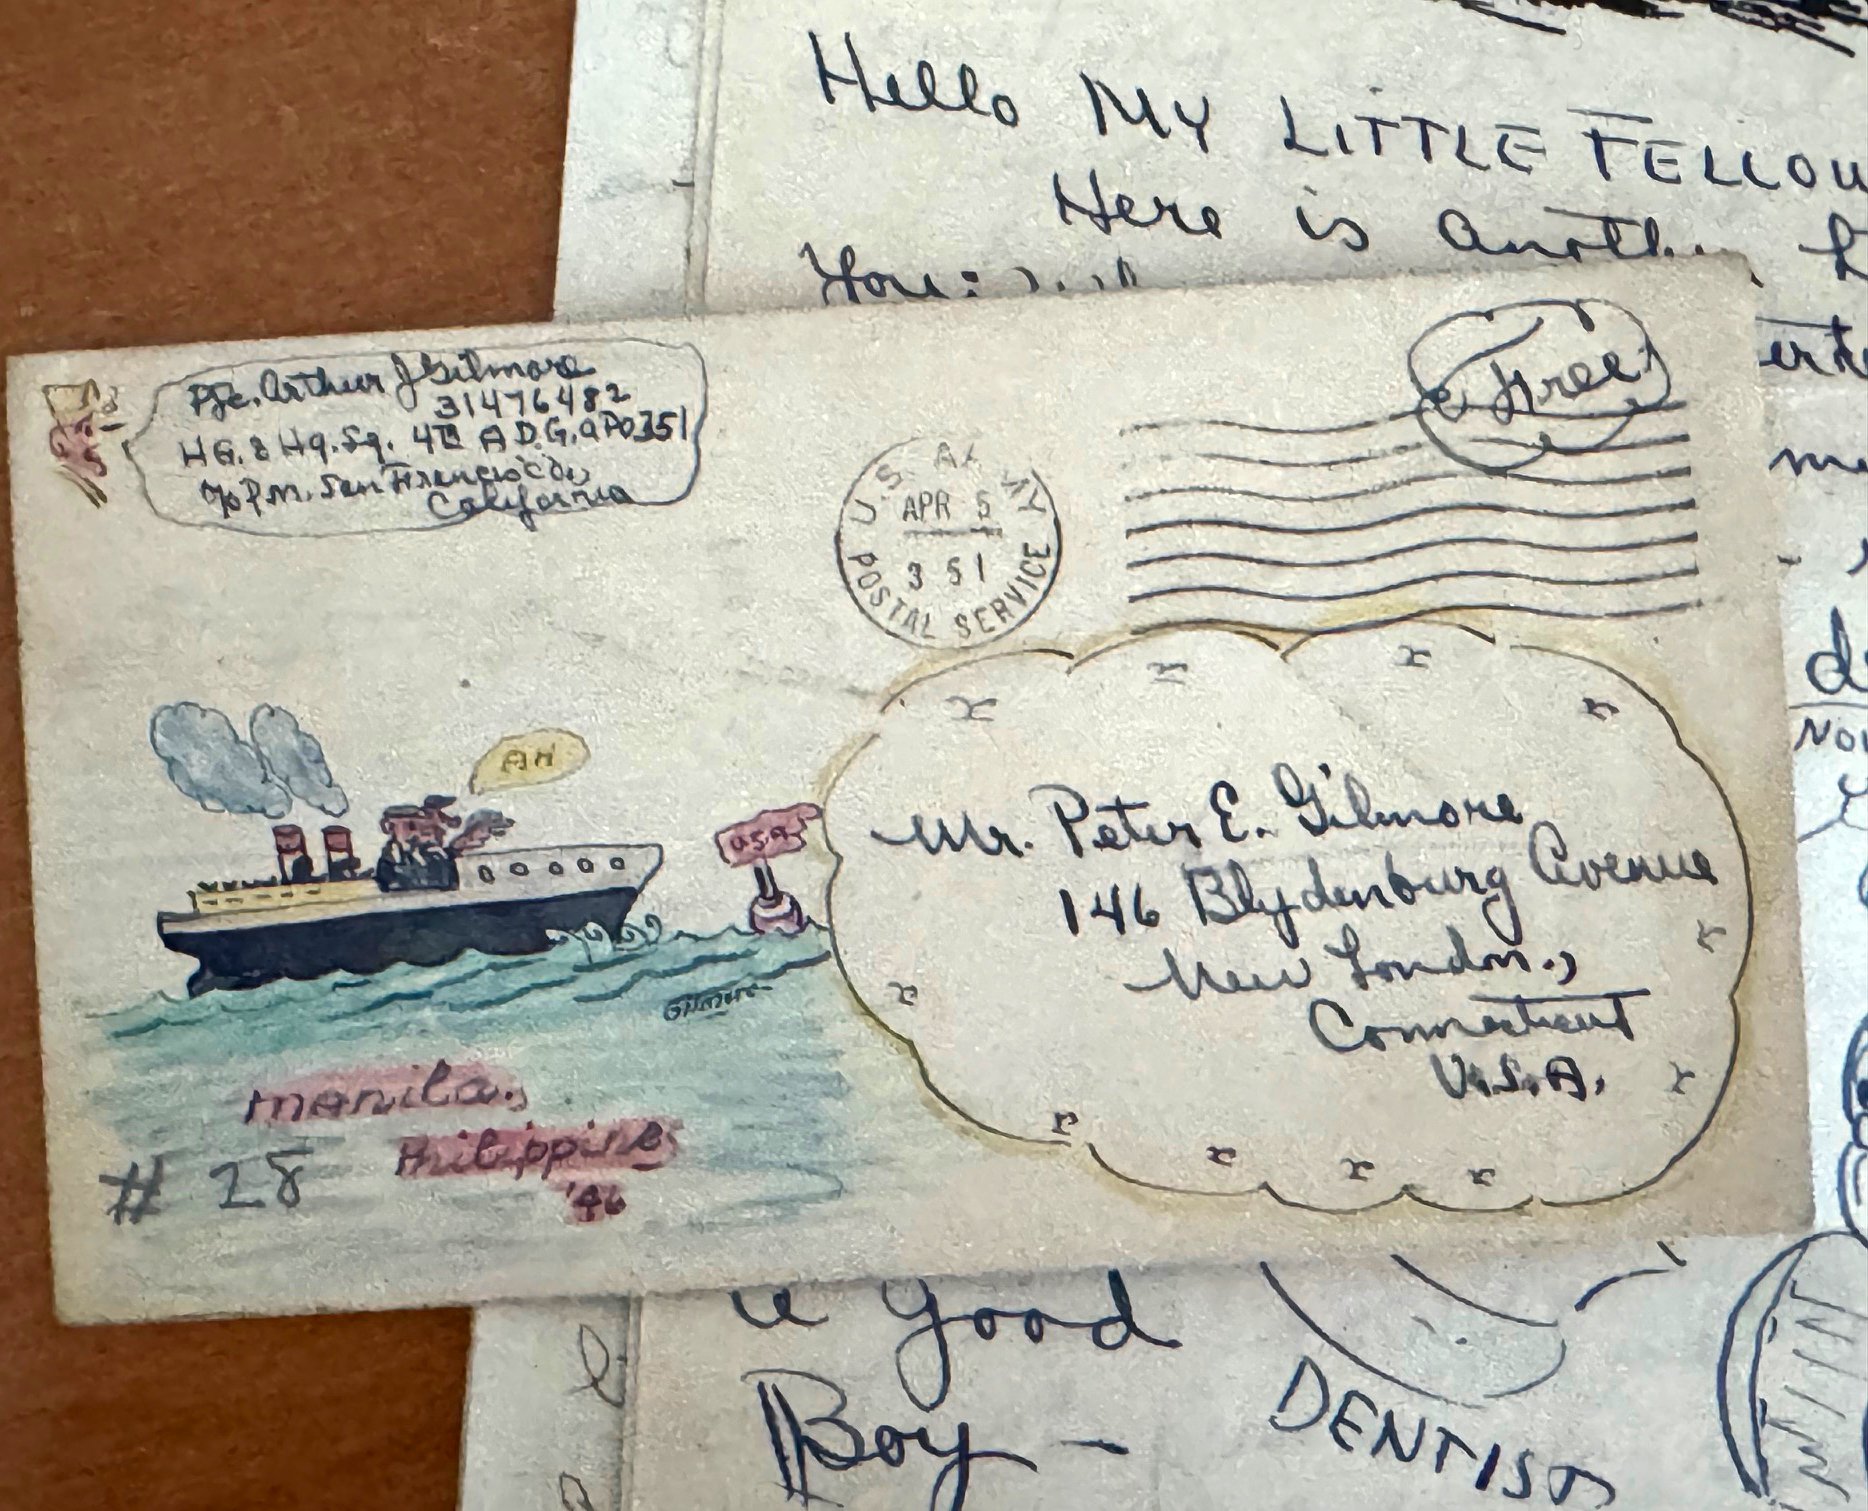 Hello MY LITTLE FELLOW
Here is another
You:
Pfc. Arthur J Gilmore
31476482
HG. & Hq. Sq. 4th A.D.G. APO 351
c/o P.M. San Francisco,
California
Free
U.S. ARMY
APR 5
351
POSTAL SERVICE
AH
U.S.A.
Mr. Peter E. Gilmore
146 Blydenburg Avenue
New London,
Connecticut
U.S.A.
Gilmore
Manila,
Philippines
'46
# 28
Good
Boy —
DENTIST